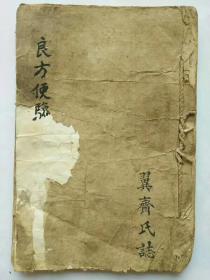 良方便驗
翼齊氏誌